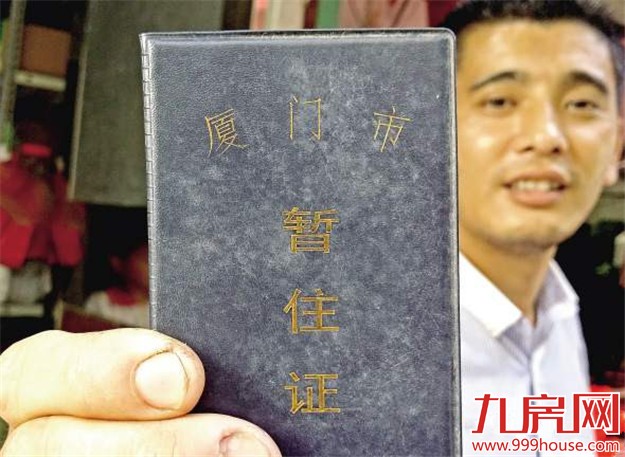 厦门市
暂
住
证
九房网
www.999house.com